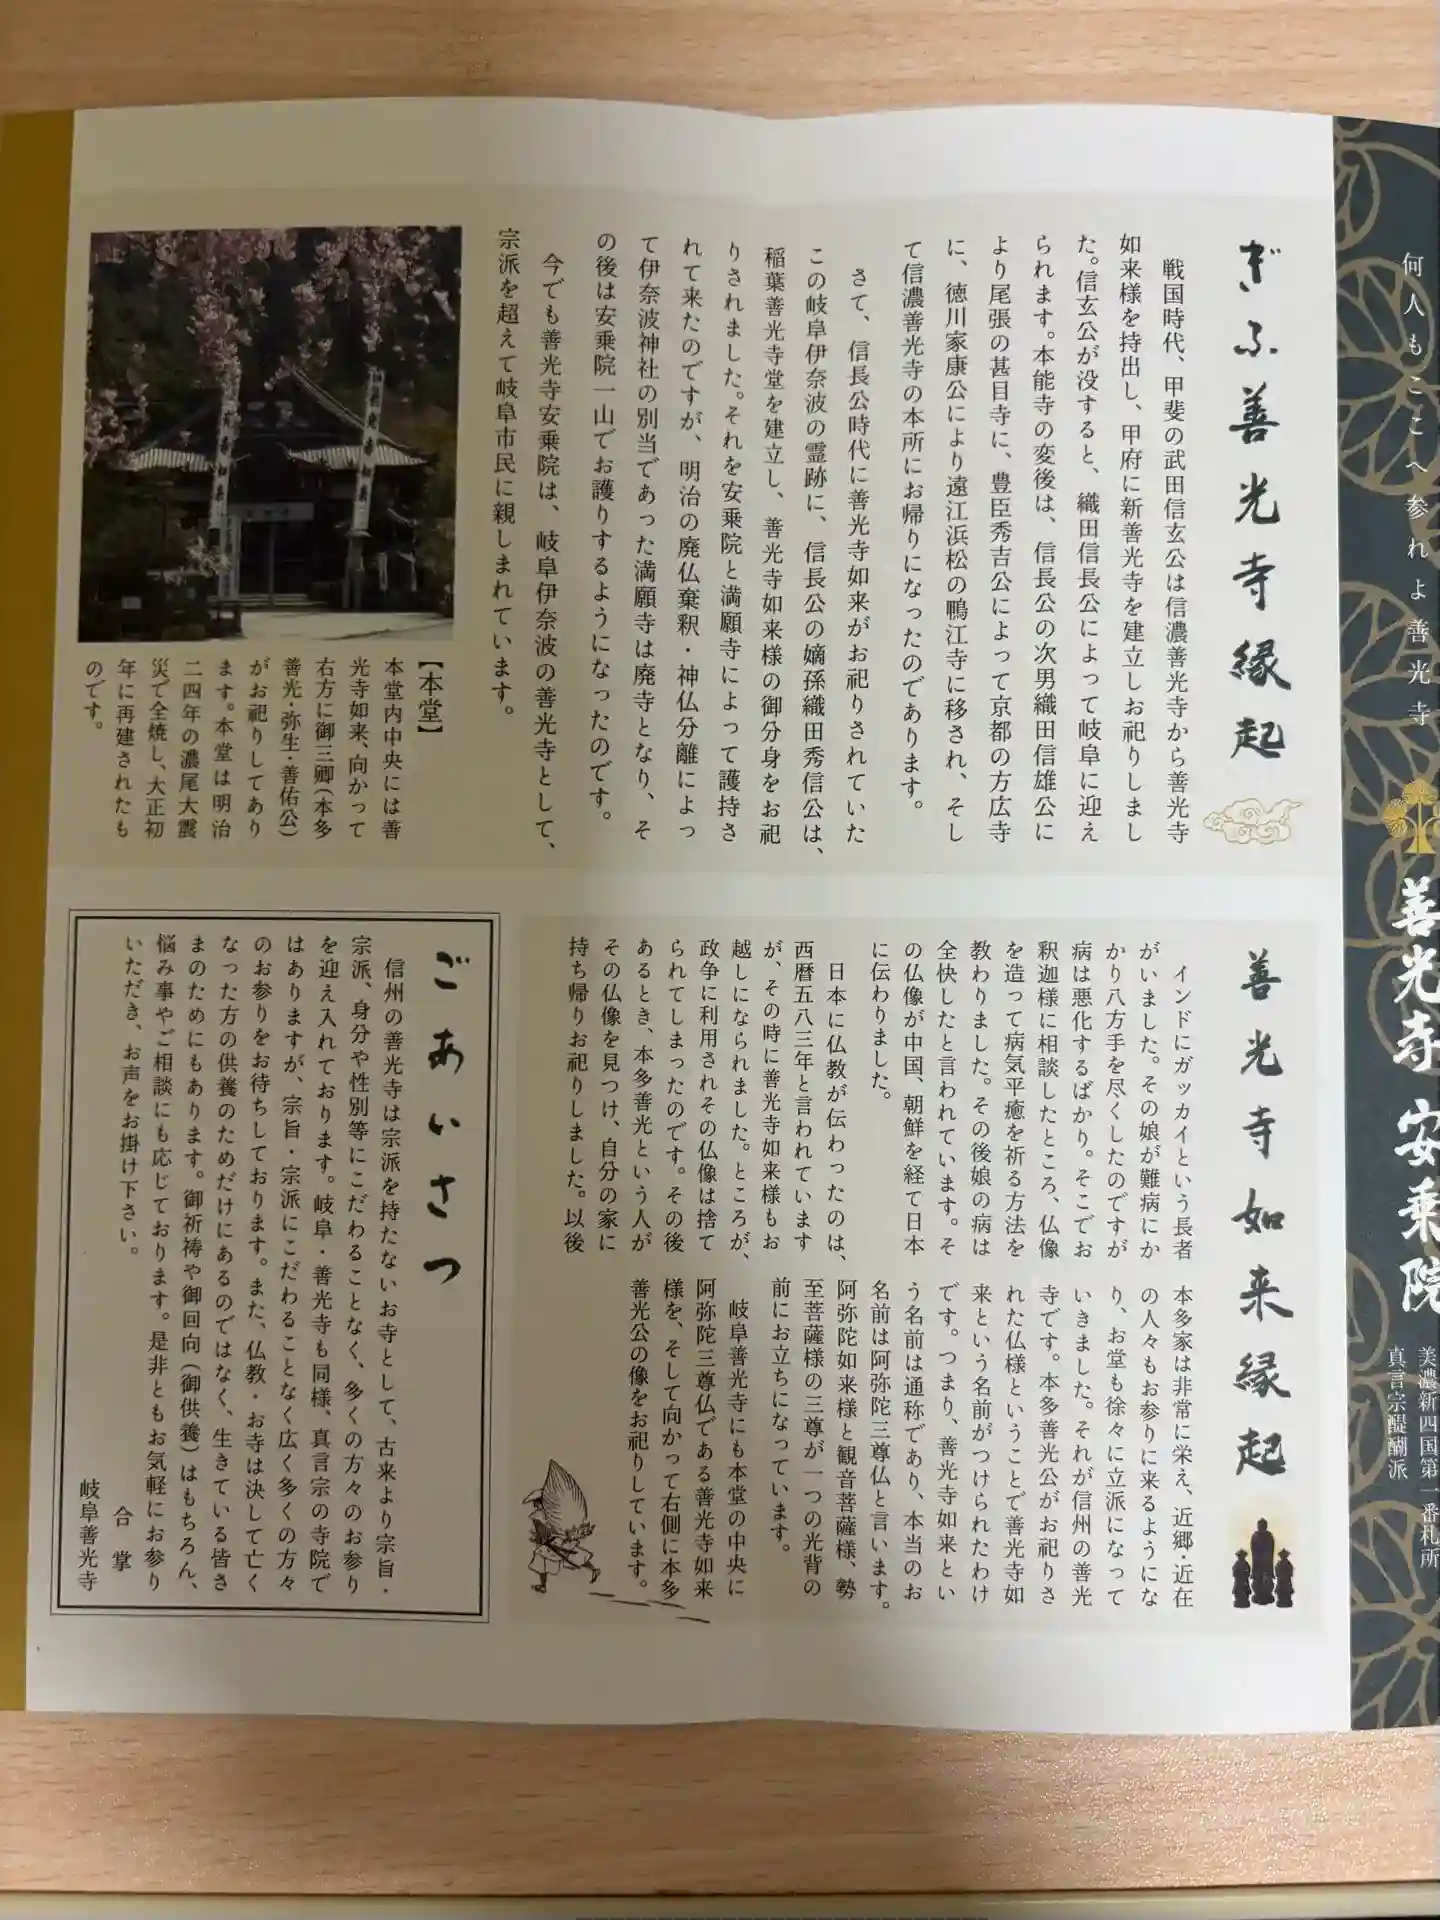 何人もここへ参れよ善光寺
善光寺 安乗院
美濃新四国第一番札所
真言宗醍醐派
ぎふ善光寺縁起
戦国時代、甲斐の武田信玄公は信濃善光寺から善光寺
如来様を持出し、甲府に新善光寺を建立しお祀りしまし
た。信玄公が没すると、織田信長公によって岐阜に迎え
られます。本能寺の変後は、信長公の次男織田信雄公に
より尾張の甚目寺に、豊臣秀吉公によって京都の方広寺
に、徳川家康公により遠江浜松の鴨江寺に移され、そし
て信濃善光寺の本所にお帰りになったのであります。
さて、信長公時代に善光寺如来がお祀りされていた
この岐阜伊奈波の霊跡に、信長公の嫡孫織田秀信公は、
稲葉善光寺堂を建立し、善光寺如来様の御分身をお祀
りされました。それを安乗院と満願寺によって護持さ
れて来たのですが、明治の廃仏棄釈・神仏分離によっ
て伊奈波神社の別当であった満願寺は廃寺となり、そ
の後は安乗院一山でお護りするようになったのです。
今でも善光寺安乗院は、岐阜伊奈波の善光寺として、
宗派を超えて岐阜市民に親しまれています。
【本堂】
本堂内中央には善
光寺如来、向かって
右方に御三卿(本多
善光・弥生・善佑公)
がお祀りしてあり
ます。本堂は明治
二四年の濃尾大震
災で全焼し、大正初
年に再建されたも
のです。
善光寺如来縁起
インドにガッカイという長者
がいました。その娘が難病にか
かり八方手を尽くしたのですが
病は悪化するばかり。そこでお
釈迦様に相談したところ、仏像
を造って病気平癒を祈る方法を
教わりました。その後娘の病は
全快したと言われています。そ
の仏像が中国、朝鮮を経て日本
に伝わりました。
日本に仏教が伝わったのは、
西暦五八三年と言われています
が、その時に善光寺如来様もお
越しになられました。ところが、
政争に利用されその仏像は捨て
られてしまったのです。その後
あるとき、本多善光という人が
その仏像を見つけ、自分の家に
持ち帰りお祀りしました。以後
本多家は非常に栄え、近郷・近在
の人々もお参りに来るようにな
り、お堂も徐々に立派になって
いきました。それが信州の善光
寺です。本多善光公がお祀りさ
れた仏様ということで善光寺如
来という名前がつけられたわけ
です。つまり、善光寺如来とい
う名前は通称であり、本当のお
名前は阿弥陀三尊仏と言います。
阿弥陀如来様と観音菩薩様、勢
至菩薩様の三尊が一つの光背の
前にお立ちになっています。
岐阜善光寺にも本堂の中央に
阿弥陀三尊仏である善光寺如来
様を、そして向かって右側に本多
善光公の像をお祀りしています。
ごあいさつ
信州の善光寺は宗派を持たないお寺として、古来より宗旨・
宗派、身分や性別等にこだわることなく、多くの方々のお参り
を迎え入れております。岐阜・善光寺も同様、真言宗の寺院で
はありますが、宗旨・宗派にこだわることなく広く多くの方々
のお参りをお待ちしております。また、仏教・お寺は決して亡く
なった方の供養のためだけにあるのではなく、生きている皆さ
まのためにもあります。御祈祷や御回向(御供養)はもちろん、
悩み事やご相談にも応じております。是非ともお気軽にお参り
いただき、お声をお掛け下さい。
合掌
岐阜善光寺